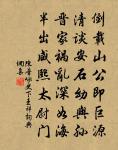 倒載山公即巨源
清談安石幼輿孫
晉家禍亂深如海
半出咸熙太尉門